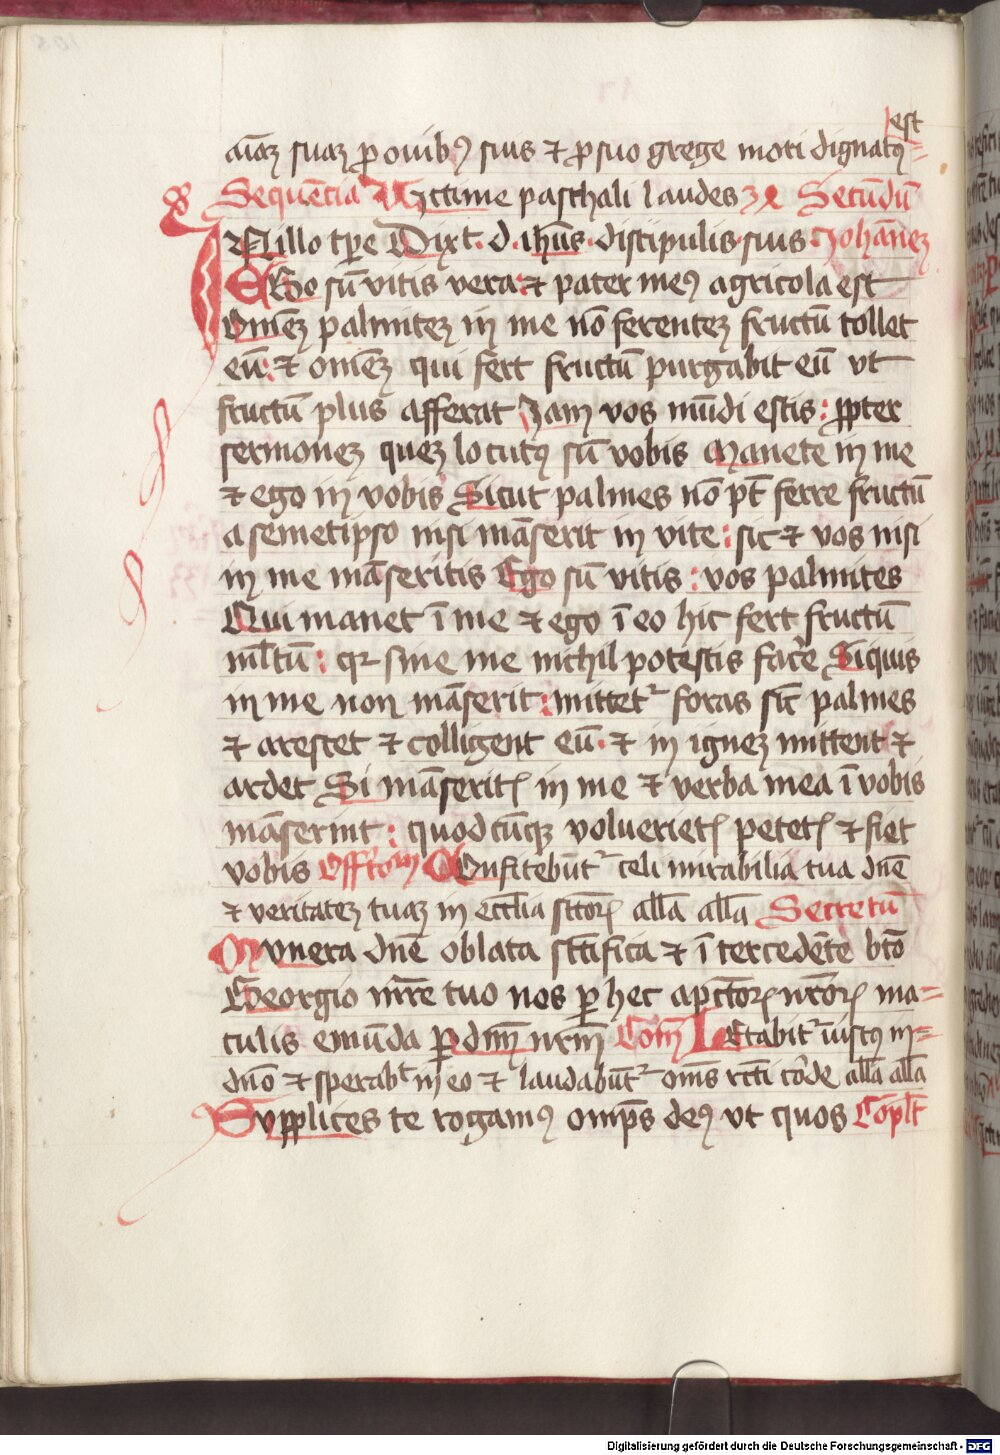 est
aīaꝫ suaꝫ ꝓ ouibꝰ suis ⁊ ꝓ suo grege mori dignatꝰ =
Sequēcia Victime paschali laudes ꝛc Secūdū
IN illo tꝑe Dixt· d· ihūs· discipulis suis Johāneꝫ
EGo sū vitis vera: ⁊ pater meꝰ agricola est
Om̄eꝫ palmiteꝫ in me nō ferenteꝫ fructū tollet
eū: ⁊ om̄eꝫ qui fert fructū purgabit eū vt
fructū plus afferat Jam vos mūdi estis: ꝓpter
sermoneꝫ queꝫ locutꝰ sū vobis Manete in me
⁊ ego in vobis Sicut palmes nō pt̄ ferre fructū
a semetipso nisi māserit in vite: sic ⁊ vos nisi
in me māseritis Ego sū vitis: vos palmites
Qui manet ī me ⁊ ego ī eo hic fert fructū
ml̄tū: qꝛ sine me nichil potestis fac̄e Siquis
in me non māserit: mittetᷣ foras sic̄ palmes
⁊ arescet ⁊ colligent eū· ⁊ in igneꝫ mittent ⁊
ardet Si māseritꝭ in me ⁊ verba mea ī vobis
māserint: quodcūqꝫ volueritetꝭ petetꝭ ⁊ fiet
vobis Offr̄oīm COnfitebūtᷣ celi mirabilia tua dn̄e
⁊ veritateꝫ tuaꝫ in eccl̄ia sctōꝝ all̄a all̄a Secretū
Munera dn̄e oblata sc̄tifica ⁊ ī tercedēte btō
Georgio mr̄e tuo nos ꝑ hec a pctōꝝ nr̄oꝝ ma=
culis emūda ꝑ dn̄m nrm̄ Com̄ LEtabitᷣ iustꝰ in=
dn̄o ⁊ sperabt in eo ⁊ laudabūtᷣ om̄s rcti cōrde all̄a all̄a
Supplices te rogamꝰ omp̄s deꝰ vt quos Cōplt̄
Digitalisierung gefördert durch die Deutsche Forschungsgemeinschaft - DFG